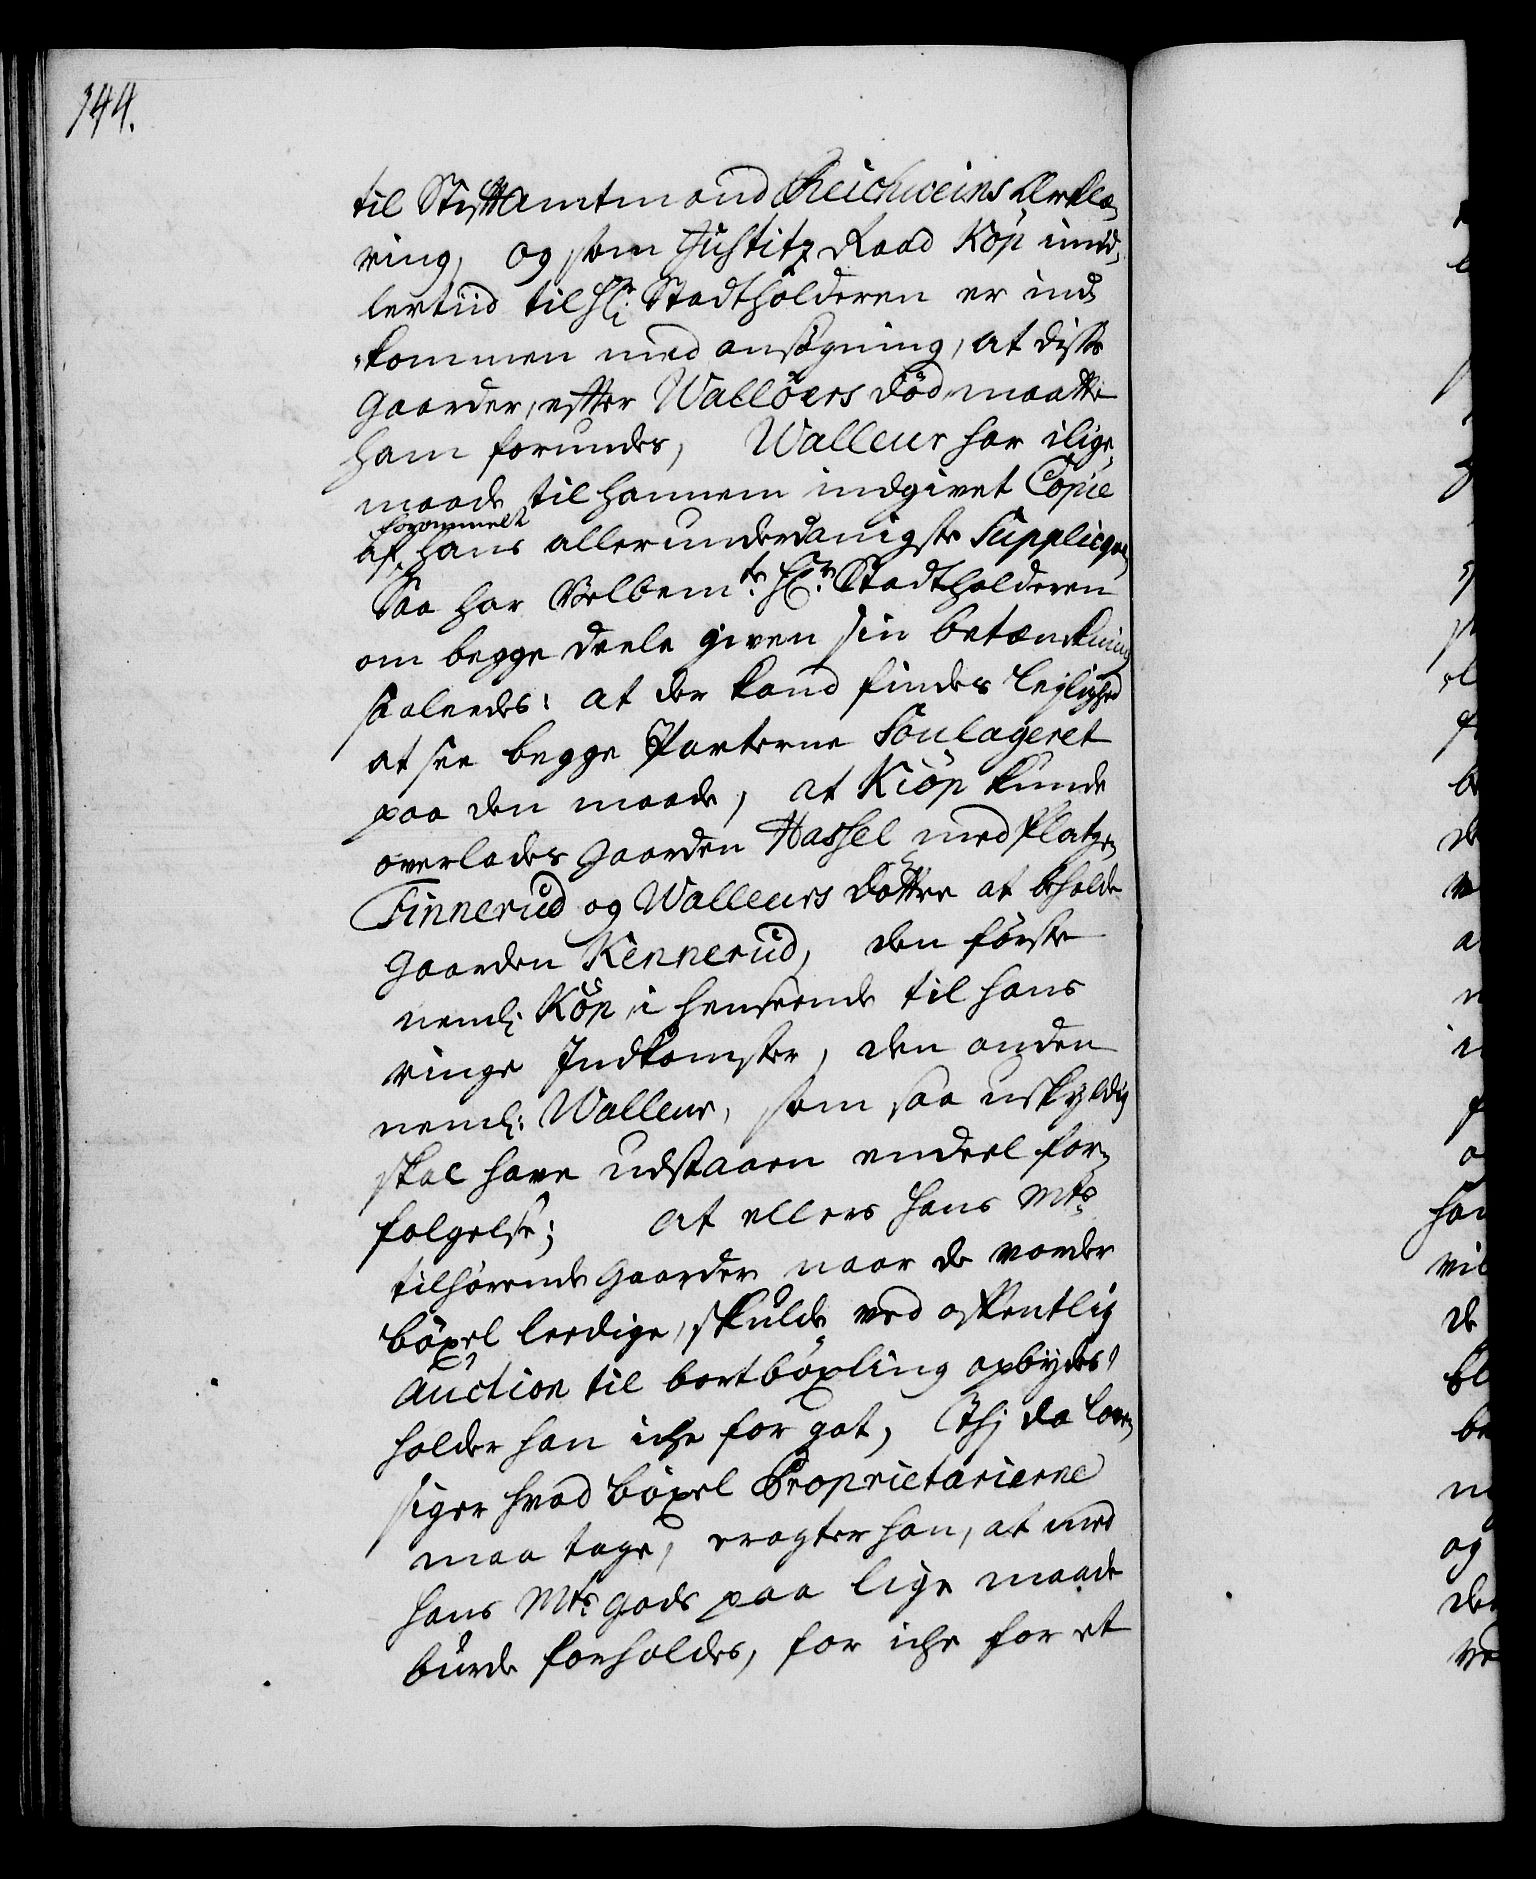 144.
til Stiftamtmand Reichweins Erklæ,
ring, og som Justitz Raad Köp imid,
lertiid til Hr: Stadtholderen er ind,
kommen med ansögning, at disse
Gaarder, efter Wallöers död maatte
ham forundes, Walleur har ilige,
maade til hannem indgivet Copie
forommelt
af hans allerunderdanigste Supplicqve,
Saa har Velbemte. Hr. Stadtholderen
om begge deele given sin betænckning
saaleedes: at der kand findes lejlighed
at see begge Parterne Soulageret
paa den maade, at Kiöp kunde
overlades Gaarden Hassel med Platzen
Finnerud og Walleurs Döttre at beholde
Gaarden Kennerud, den förste
neml: Köp i henseende til hans
ringe Indkomster, den anden
neml: Walleur, som saa uskyldig
skal have udstaaen endeel for,
folgelse; at ellers Hans Mts
tilhörende Gaarder naar de vorder
böxel leedige, skulde ved offentlig
Auction til bortböxling opbydes,
holder han iche for got, Thj da Loven
siger hvad böxel Proprietarierne
maa tage, eragter han, at med
Hans Mts Gods paa lige maade
burde forholdes, for iche for et